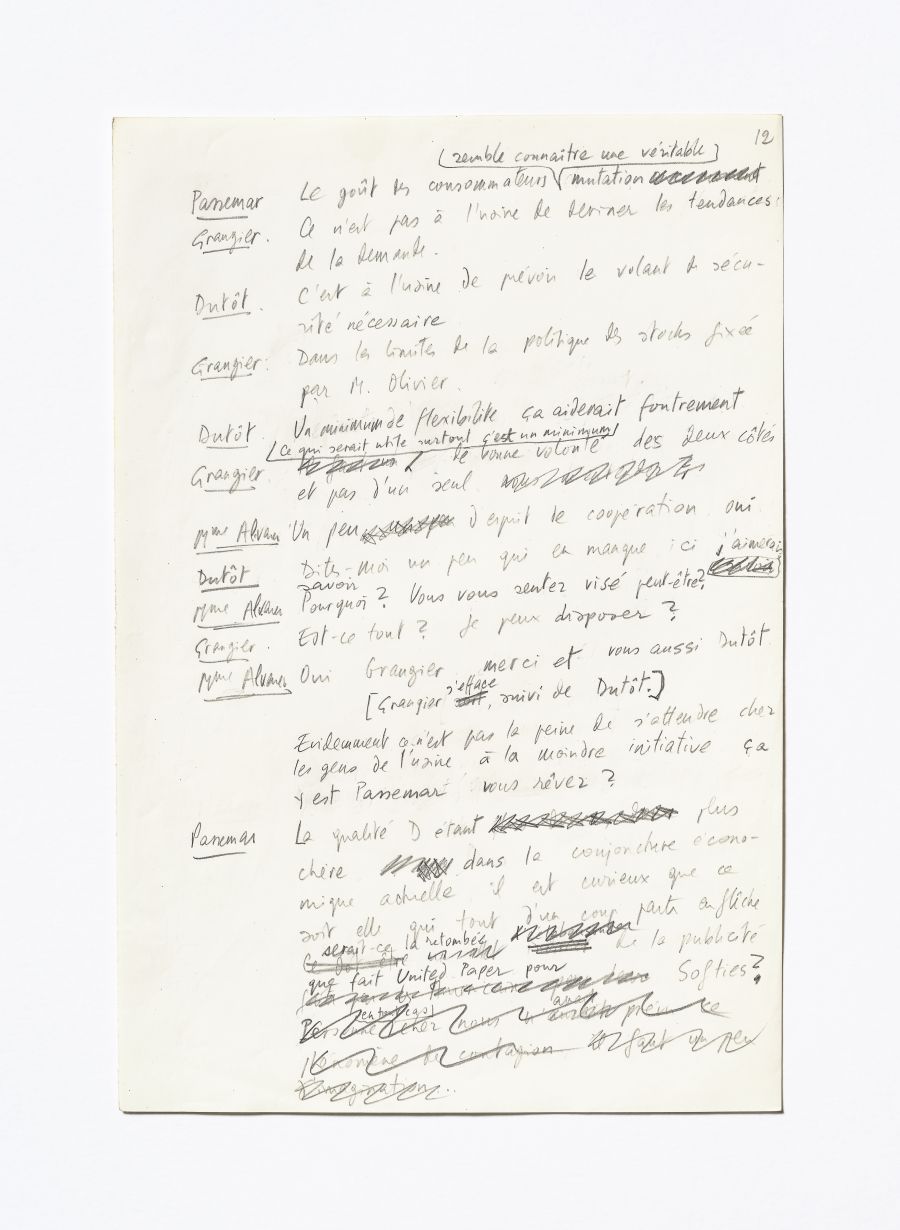 12
(semble connaître une véritable)
Passemar Le goût des consommateurs mutation
Grangier. Ce n'est pas à l'usine de deviner les tendances
de la demande.
Dutôt. C'est à l'usine de prévoir le volant de sécu-
rité nécessaire
Grangier. Dans les limites de la politique des stocks fixée
par M. Olivier.
Dutôt. Un minimum de flexibilité ça aiderait foutrement
(Ce qui serait utile surtout c'est un minimum)
Grangier. de bonne volonté des deux côtés
et pas d'un seul
Mme Alvarez Un peu d'esprit de coopération oui
Dutôt Dites-moi un peu qui en manque ici j'aimerais
savoir
Mme Alvarez Pourquoi? Vous vous sentez visé peut-être?
Grangier. Est-ce tout? Je peux disposer?
Mme Alvarez Oui Grangier merci et vous aussi Dutôt
s'efface
[Grangier, suivi de Dutôt.]
Evidemment ce n'est pas la peine de s'attendre chez
les gens de l'usine à la moindre initiative ça
y est Passemar vous rêvez?
Passemar La qualité D étant plus
chère dans la conjoncture écono-
mique actuelle il est curieux que ce
soit elle qui tout d'un coup parte en flèche
serait-ce la retombée
de la publicité
que fait United Paper pour Softies?
(en tout cas)
Personne chez nous prévu ce
phénomène de contagion il faut un peu
d'imagination..